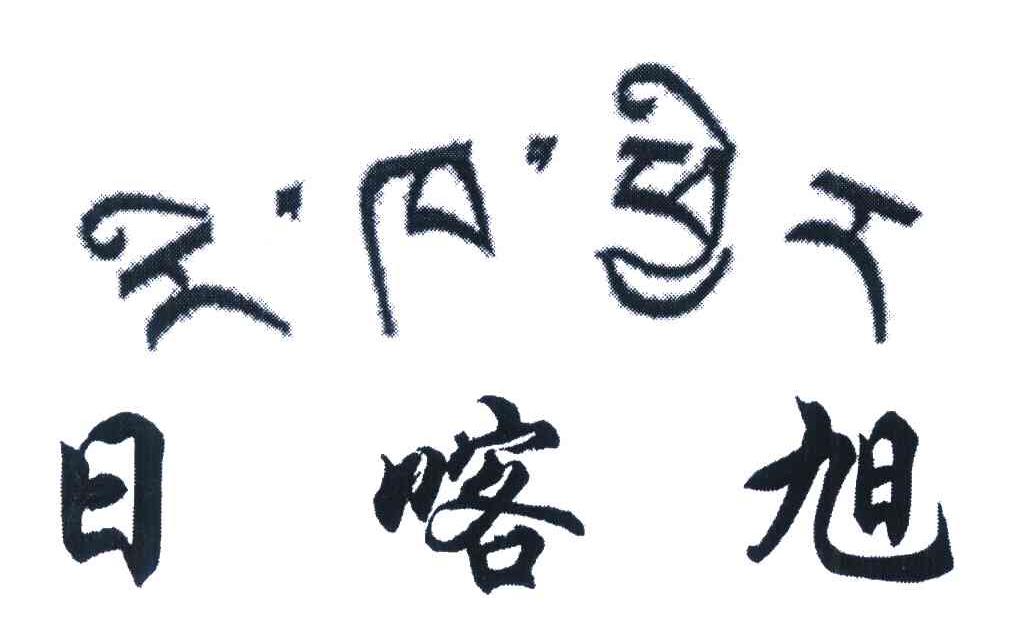 རི་ཁ་
日喀旭